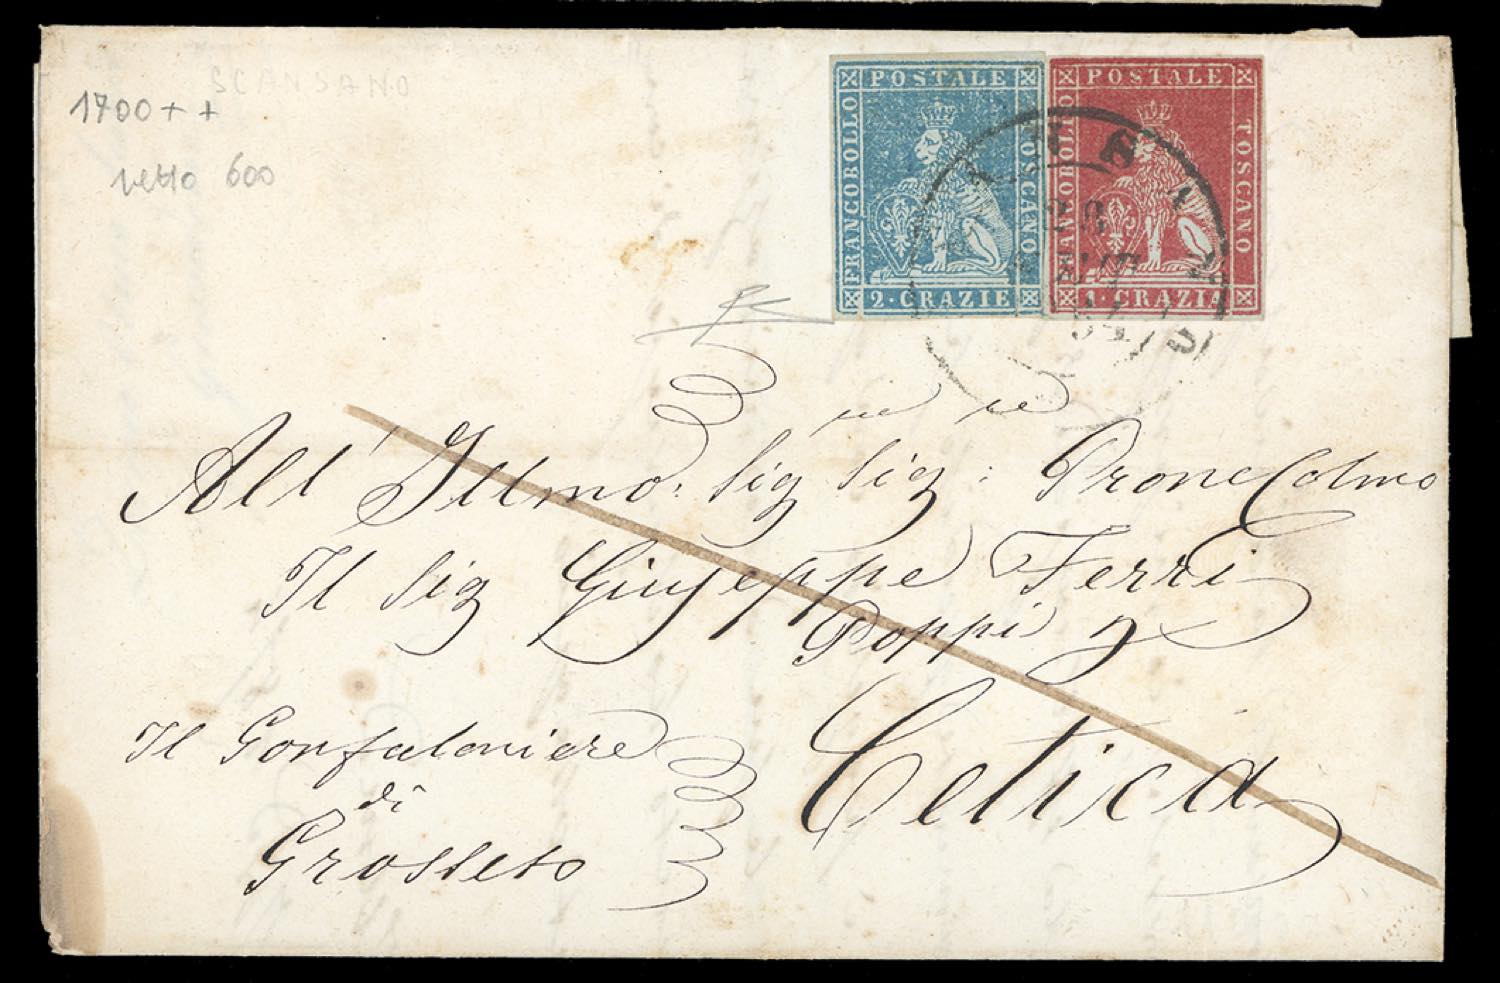 SCANSANO
1700 + +
netto 600
POSTALE
FRANCOBOLLO
TOSCANO
2 · CRAZIE
POSTALE
FRANCOBOLLO
TOSCANO
1 · CRAZIA
SCANSANO
All' Illmo. Sig Sig : Prone Colmo
Il Sig Giuseppe Ferri
Poppi
Cetica
Il Gonfaloniere
di
Grosseto